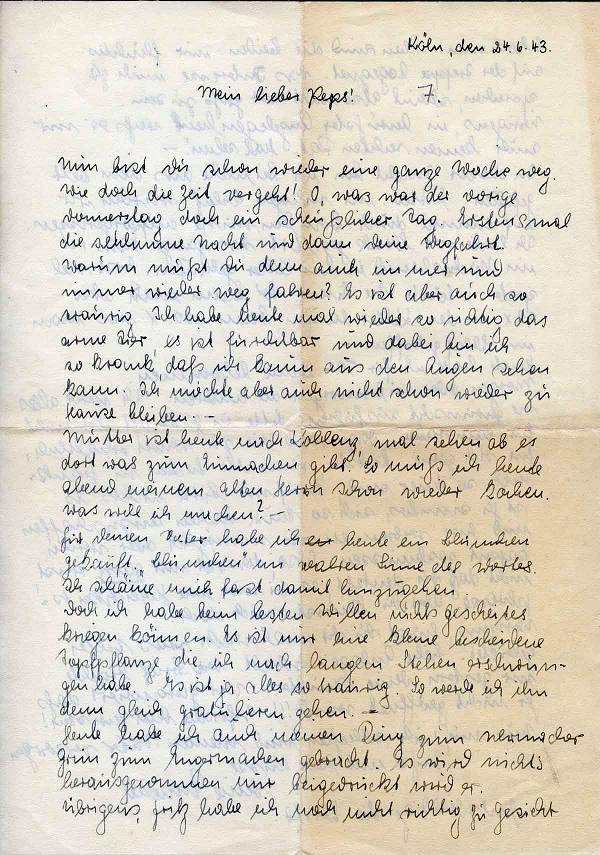 Köln, den 24.6.43.
Mein lieber Peps! 7.
Nun bist Du schon wieder eine ganze Woche weg.
Wie doch die Zeit vergeht! O, was war der vorige
Donnerstag doch ein scheußlicher Tag. Erstens mal
die schlimme Nacht und dann Deine Wegfahrt.
Warum mußt Du denn auch immer und
immer wieder weg fahren? Es ist aber auch so
traurig. Ich habe heute mal wieder so richtig das
arme Tier, es ist furchtbar und dabei bin ich
so krank, daß ich kaum aus den Augen sehen
kann. Ich möchte aber auch nicht schon wieder zu
Hause bleiben. –
Mutter ist heute nach Koblenz, mal sehen ob es
dort was zum Einmachen gibt. So muß ich heute
abend meinem alten Herrn schon wieder kochen.
Was will ich machen? –
Für Deinen Vater habe ich heute ein Blümchen
gekauft. "Blümchen" im wahren Sinne des Wortes.
Ich schäme mich fast damit hinzugehen.
Doch ich habe beim besten Willen nichts gescheites
kriegen können. Es ist nur eine kleine bescheidene
Topfpflanze die ich nach langem Stehen erschwin-
gen habe. Es ist ja alles so traurig. So werde ich ihm
denn gleich gratulieren gehen. –
Heute habe ich auch meinen Ring zum
zum Engermachen gebracht. Es wird nichts
herausgenommen nur beigedrückt wird er.
Übrigens, Fritz habe ich noch nicht richtig zu Gesicht